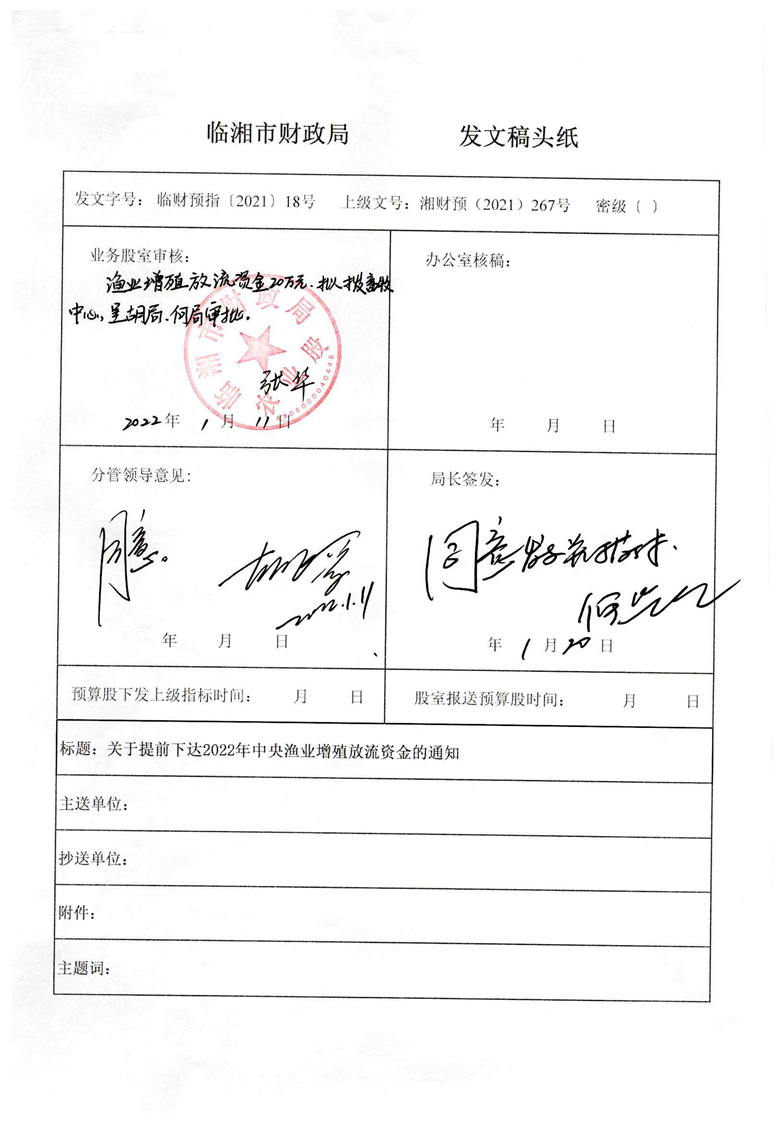 临湘市财政局 发文稿头纸
发文字号：临财预指〔2021〕18号 上级文号：湘财预（2021）267号 密级〔 〕
业务股室审核：
渔业增殖放流资金20万元、拟拨畜牧
中心，呈胡局、何局审批。
临湘市财政局
农业股
4306000040448
张华
2022年1月11日
办公室核稿：
年 月 日
分管领导意见：
同意。
2022.1.11
年 月 日
局长签发：
同意
年1月20日
预算股下发上级指标时间： 月 日
股室报送预算股时间： 月 日
标题：关于提前下达2022年中央渔业增殖放流资金的通知
主送单位：
抄送单位：
附件：
主题词：